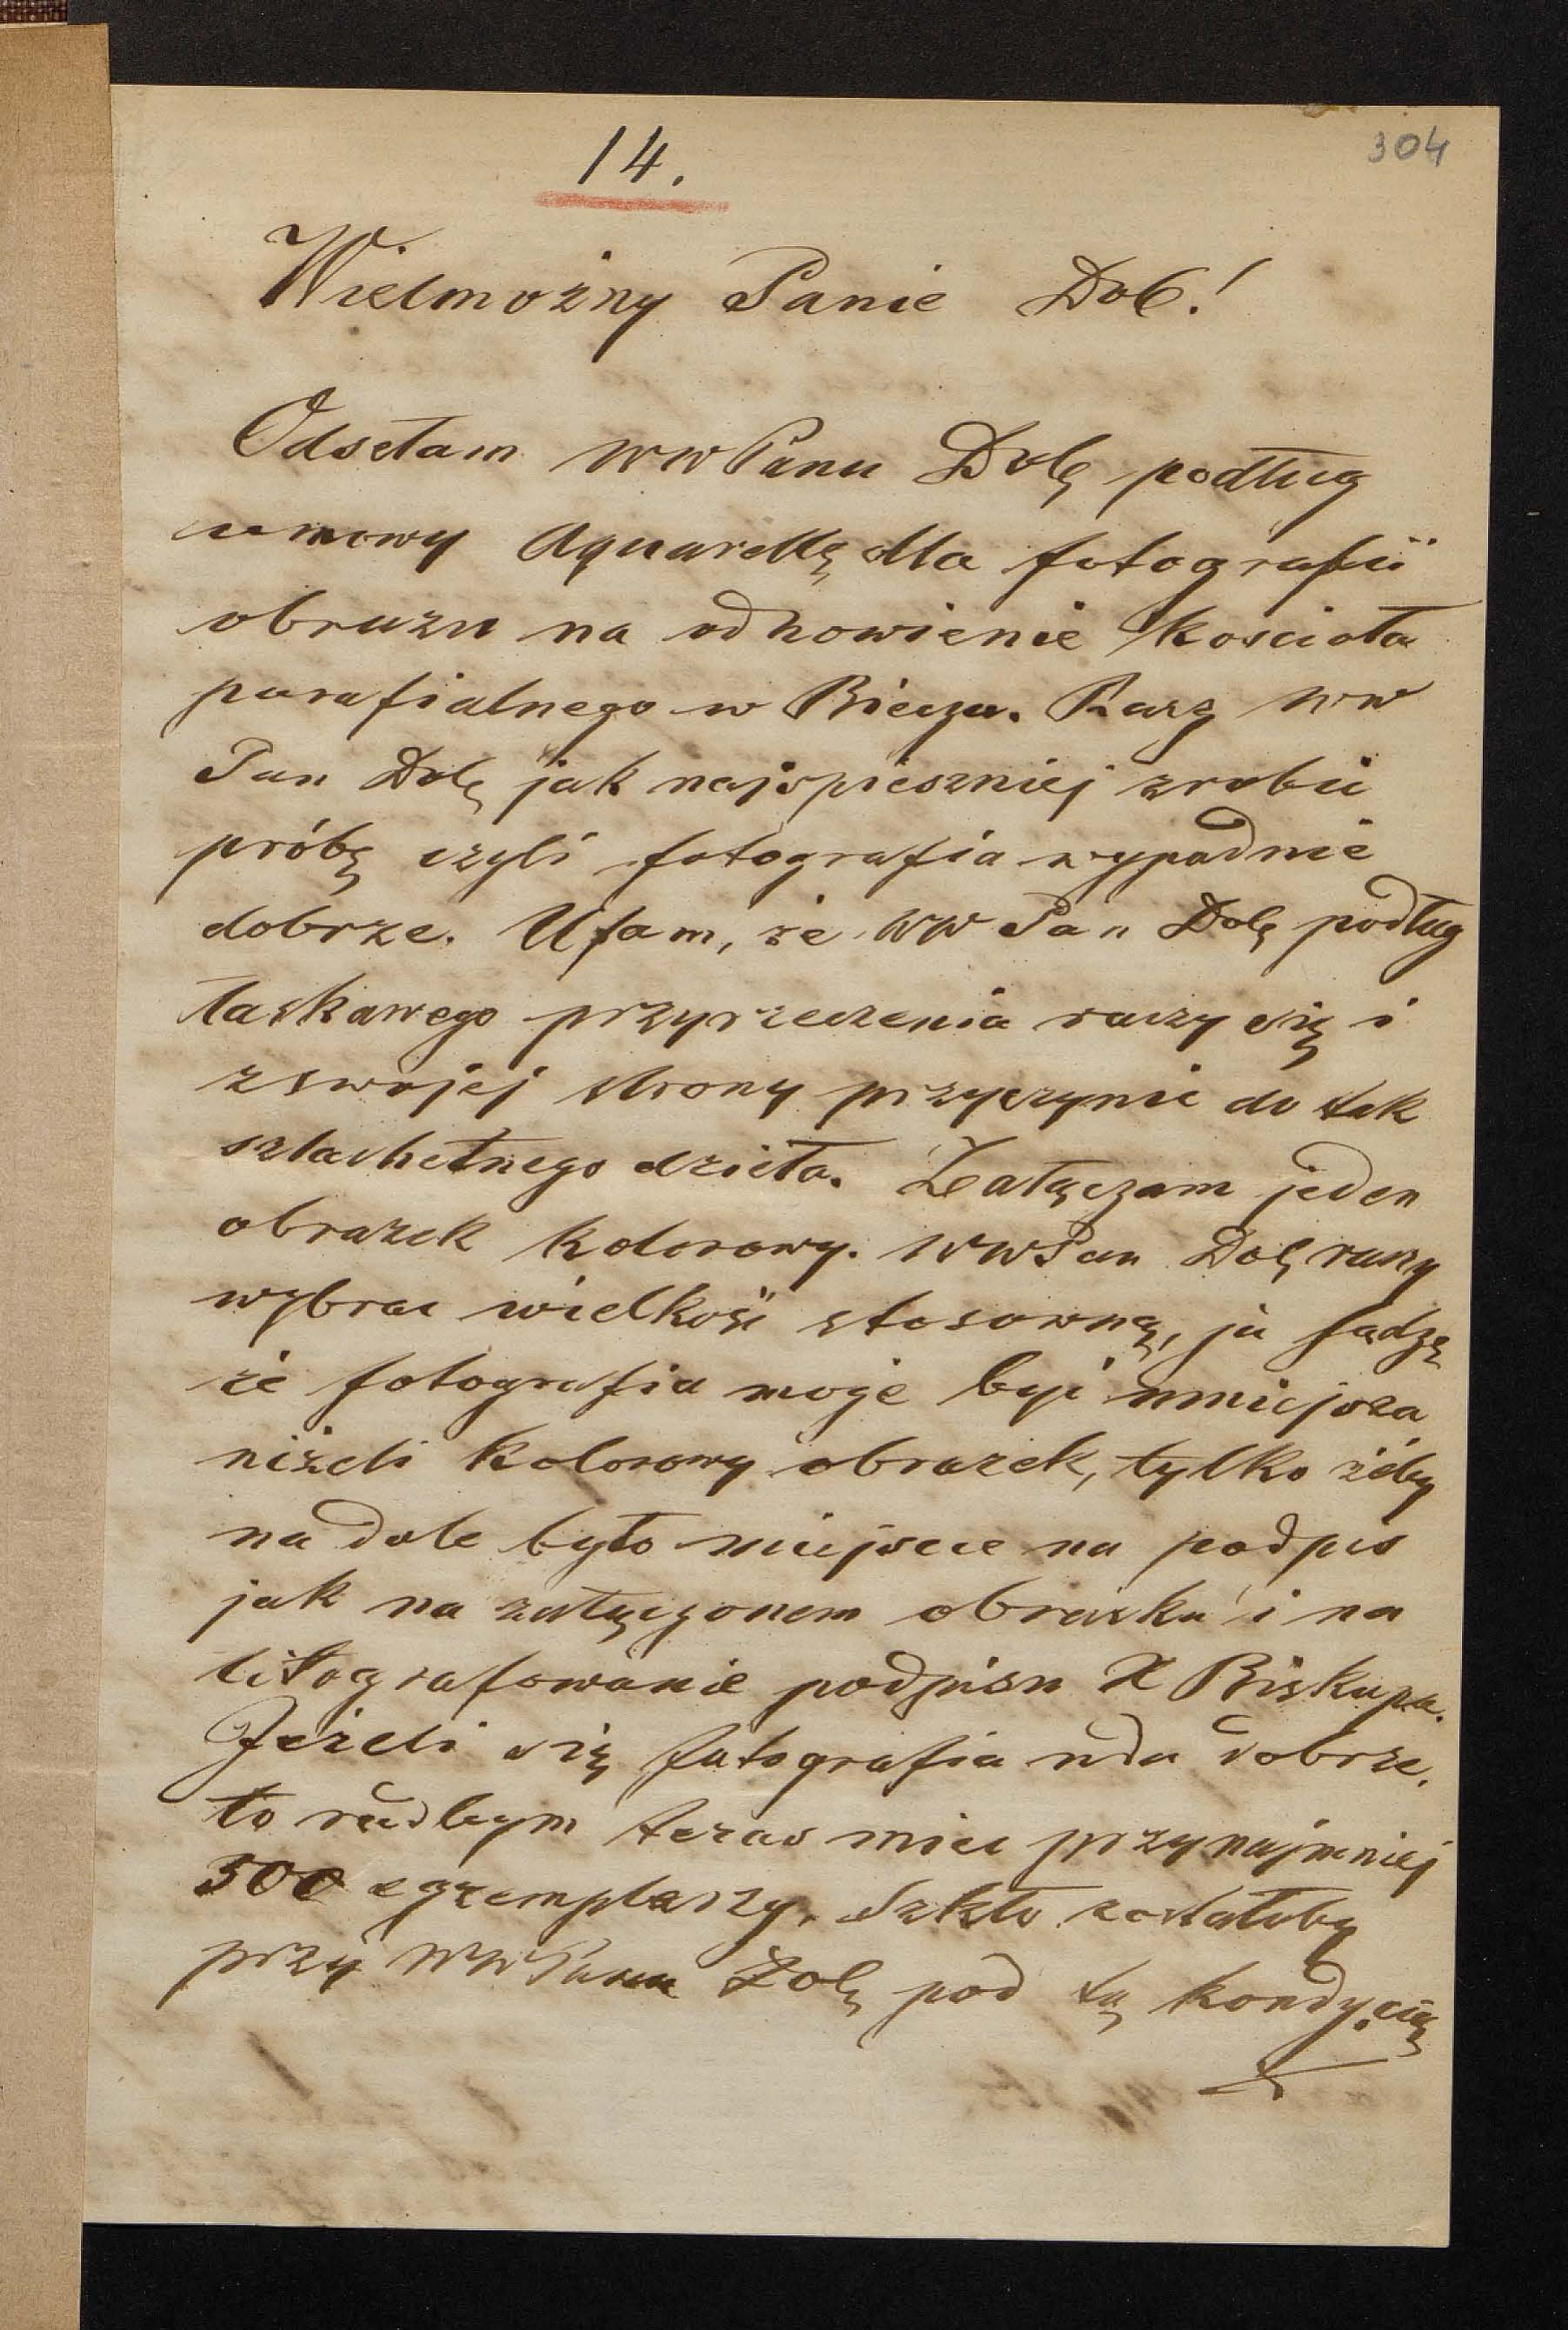 304
14.
Wielmożny Panie Dob!
Odsełam WW Panu Dob podług
umowy Aquarellę dla fotografii
obrazu na odnowienie kościoła
parafialnego w Bieczu. Raczy WW
Pan Dob jak najspieszniej zrobić
próbę czyli fotografia wypadnie
dobrze. Ufam, że WW Pan Dob podług
łaskawego przyrzeczenia raczy się i
z swojej strony przyczynić do tak
szlachetnego dzieła. Załączam jeden
obrazek kolorowy. WW Pan Dob raczy
wybrać wielkość stosowną, ja sądzę
że fotografia może być mniejsza
niżeli kolorowy obrazek, tylko żeby
na dole było miejsce na podpis
jak na załączonem obrazku i na
litografowanie podpisu X Biskupa.
Jeżeli się fotografia uda dobrze,
to radbym teraz mieć przynajmniej
500 egzemplarzy. Szkło zostałoby
przy WW Panu Dob pod tą kondycią